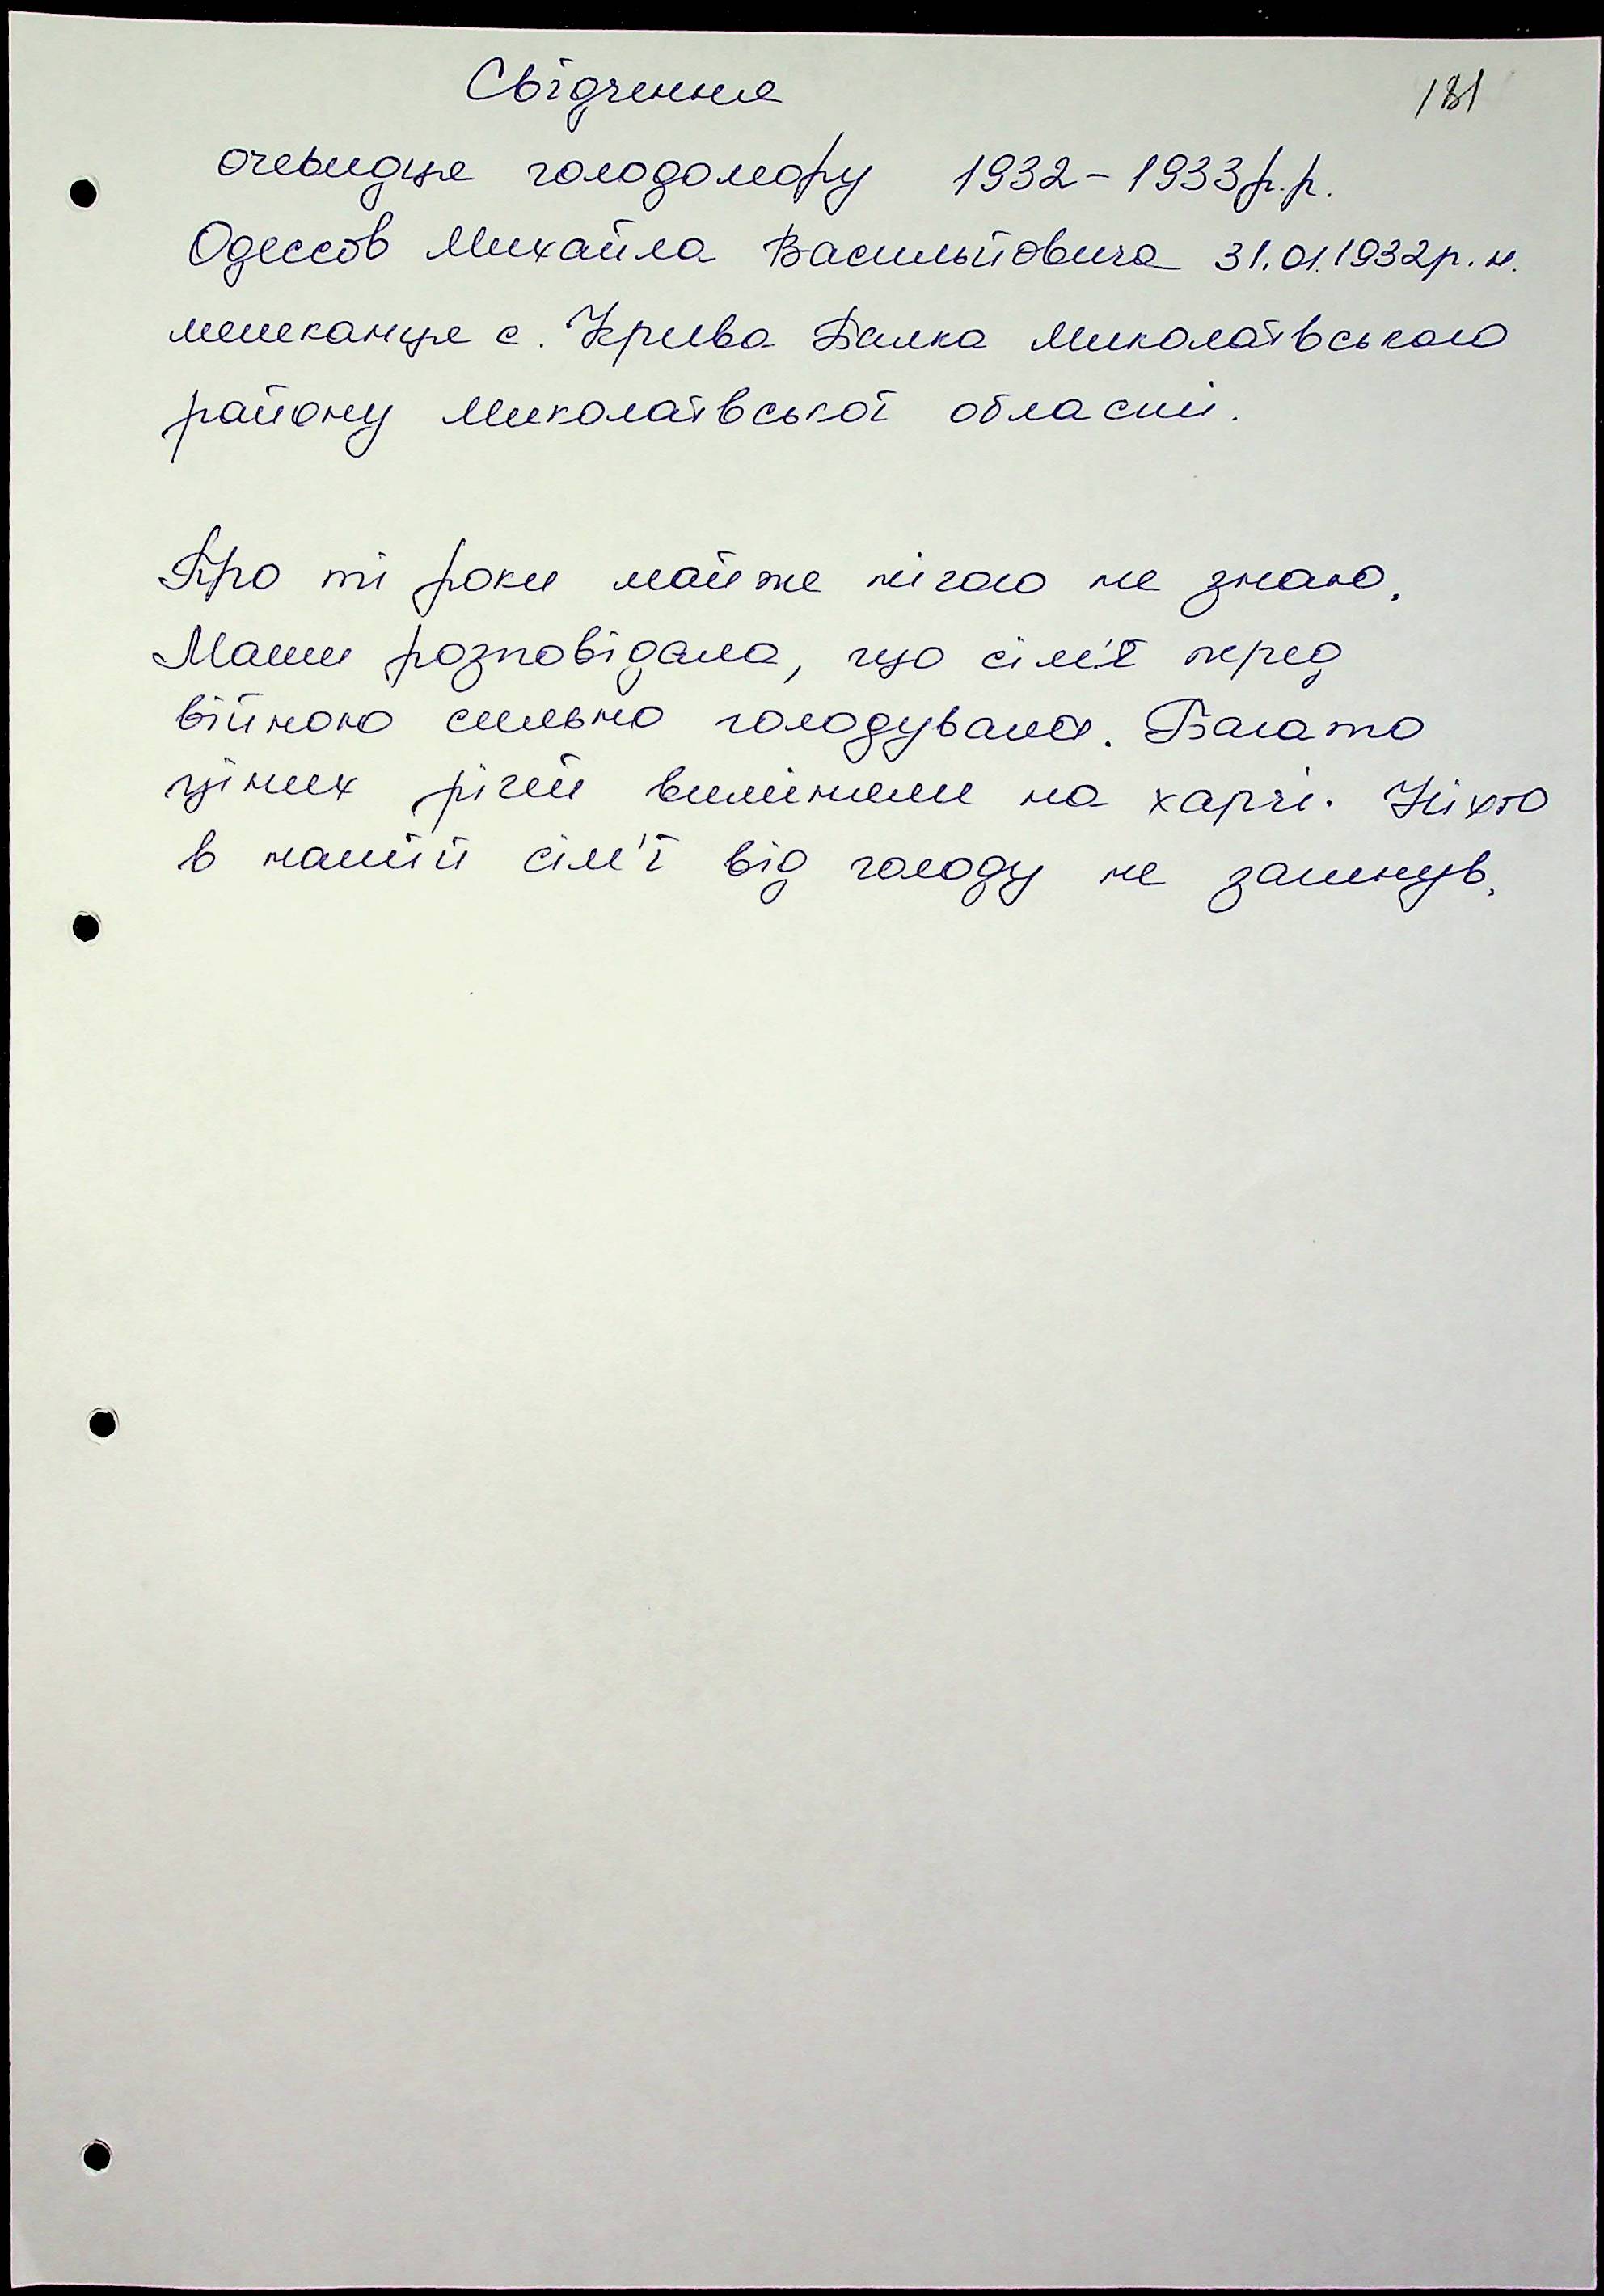 Свідчення
181
очевидця голодомору 1932-1933р.р.
Одессов Михайла Васильйовича 31.01.1932р.н.
мешканця с. Крива Балка Миколаївського
району Миколаївської області.
Про ті роки майже нічого не знаю.
Мати розповідала, що сім'я перед
війною сильно голодувала. Багато
цінних річей виміняли на харчі. Ніхто
в нашій сім'ї від голоду не загинув.